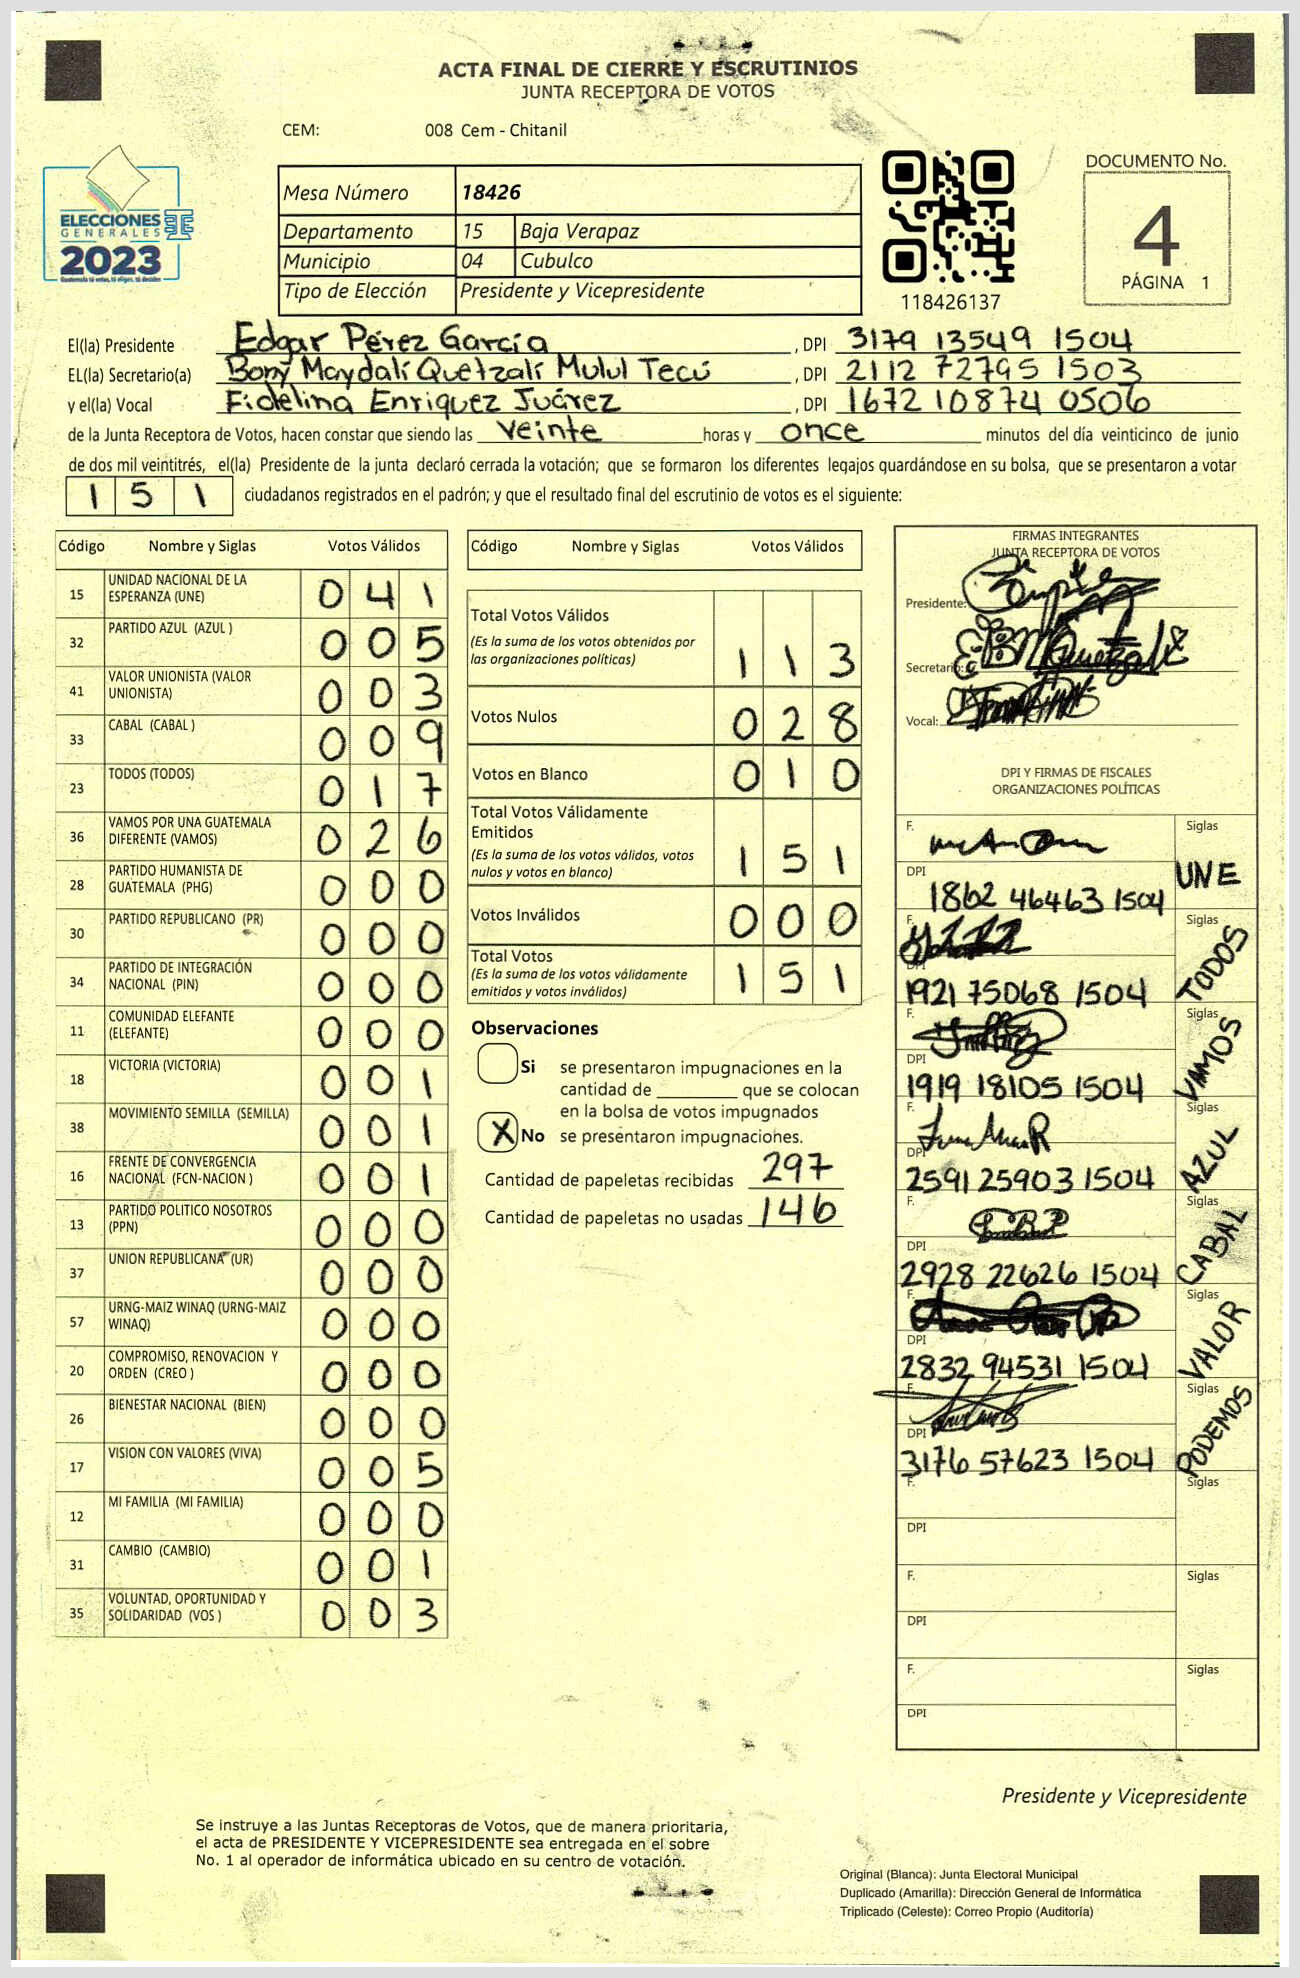 ACTA FINAL DE CIERRE Y ESCRUTINIOS
JUNTA RECEPTORA DE VOTOS
CEM: 008 Cem - Chitanil
ELECCIONES
GENERALES
2023
Mesa Número 18426
Departamento 15 Baja Verapaz
Municipio 04 Cubulco
Tipo de Elección Presidente y Vicepresidente
118426137
DOCUMENTO No.
4
PÁGINA 1
El(la) Presidente Edgar Pérez García , DPI 3179 13549 1504
EL(la) Secretario(a) Bony Maydalí Quetzalí Mulul Tecú , DPI 2112 72795 1503
y el(la) Vocal Fidelina Enriquez Juárez , DPI 1672 10874 0506
de la Junta Receptora de Votos, hacen constar que siendo las veinte horas y once minutos del día veinticinco de junio
de dos mil veintitrés, el(la) Presidente de la junta declaró cerrada la votación; que se formaron los diferentes legajos guardándose en su bolsa, que se presentaron a votar
1 5 1 ciudadanos registrados en el padrón; y que el resultado final del escrutinio de votos es el siguiente:
Código Nombre y Siglas Votos Válidos
15 UNIDAD NACIONAL DE LA ESPERANZA (UNE) 0 4 1
32 PARTIDO AZUL (AZUL ) 0 0 5
41 VALOR UNIONISTA (VALOR UNIONISTA) 0 0 3
33 CABAL (CABAL ) 0 0 9
23 TODOS (TODOS) 0 1 7
36 VAMOS POR UNA GUATEMALA DIFERENTE (VAMOS) 0 2 6
28 PARTIDO HUMANISTA DE GUATEMALA (PHG) 0 0 0
30 PARTIDO REPUBLICANO (PR) 0 0 0
34 PARTIDO DE INTEGRACIÓN NACIONAL (PIN) 0 0 0
11 COMUNIDAD ELEFANTE (ELEFANTE) 0 0 0
18 VICTORIA (VICTORIA) 0 0 1
38 MOVIMIENTO SEMILLA (SEMILLA) 0 0 1
16 FRENTE DE CONVERGENCIA NACIONAL (FCN-NACION ) 0 0 1
13 PARTIDO POLITICO NOSOTROS (PPN) 0 0 0
37 UNION REPUBLICANA (UR) 0 0 0
57 URNG-MAIZ WINAQ (URNG-MAIZ WINAQ) 0 0 0
20 COMPROMISO, RENOVACION Y ORDEN (CREO ) 0 0 0
26 BIENESTAR NACIONAL (BIEN) 0 0 0
17 VISION CON VALORES (VIVA) 0 0 5
12 MI FAMILIA (MI FAMILIA) 0 0 0
31 CAMBIO (CAMBIO) 0 0 1
35 VOLUNTAD, OPORTUNIDAD Y SOLIDARIDAD (VOS ) 0 0 3
Código Nombre y Siglas Votos Válidos
Total Votos Válidos
(Es la suma de los votos obtenidos por
las organizaciones políticas) 1 1 3
Votos Nulos 0 2 8
Votos en Blanco 0 1 0
Total Votos Válidamente
Emitidos
(Es la suma de los votos válidos, votos
nulos y votos en blanco) 1 5 1
Votos Inválidos 0 0 0
Total Votos
(Es la suma de los votos válidamente
emitidos y votos inválidos) 1 5 1
Observaciones
Si se presentaron impugnaciones en la
cantidad de ________ que se colocan
en la bolsa de votos impugnados
X No se presentaron impugnaciones.
Cantidad de papeletas recibidas 297
Cantidad de papeletas no usadas 146
FIRMAS INTEGRANTES
JUNTA RECEPTORA DE VOTOS
Presidente:
Secretario:
Vocal:
DPI Y FIRMAS DE FISCALES
ORGANIZACIONES POLÍTICAS
F. Siglas
DPI 1862 46463 1504 UNE
F. Siglas
DPI 1921 75068 1504 TODOS
F. Siglas
DPI 1919 18105 1504 VAMOS
F. Siglas
DPI 2591 25903 1504 AZUL
F. Siglas
DPI 2928 22626 1504 CABAL
F. Siglas
DPI 2832 94531 1504 VALOR
F. Siglas
DPI 3176 57623 1504 PODEMOS
F. Siglas
DPI
F. Siglas
DPI
F. Siglas
DPI
Presidente y Vicepresidente
Se instruye a las Juntas Receptoras de Votos, que de manera prioritaria,
el acta de PRESIDENTE Y VICEPRESIDENTE sea entregada en el sobre
No. 1 al operador de informática ubicado en su centro de votación.
Original (Blanca): Junta Electoral Municipal
Duplicado (Amarilla): Dirección General de Informática
Triplicado (Celeste): Correo Propio (Auditoría)